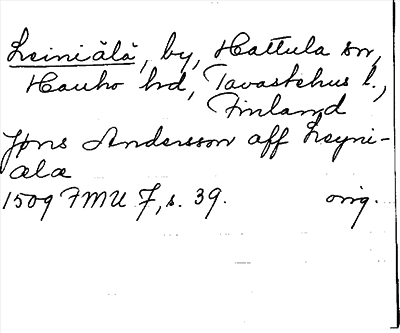 Leiniälä, by, Hattula sn,
Hauho hd, Tavastehus l.,
Finland
Jöns Andersson aff Leyni-
ala
1509 FMU 7, s. 39. orig.